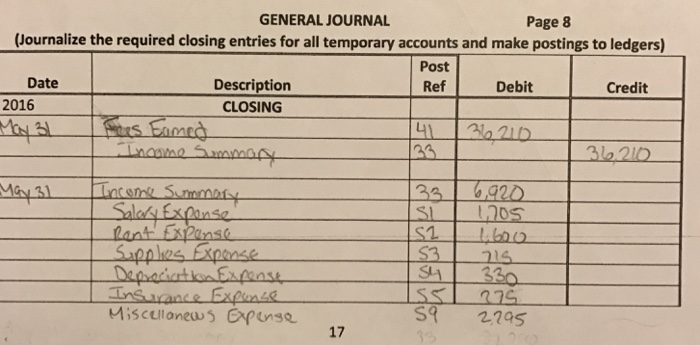 GENERAL JOURNAL Page 8
(Journalize the required closing entries for all temporary accounts and make postings to ledgers)
Date Description Post Ref Debit Credit
2016 CLOSING
May 31 Fees Earned 41 36,210
Income Summary 33 36,210
May 31 Income Summary 33 6,920
Salary Expense 51 1,705
Rent Expense 52 1,600
Supplies Expense 53 715
Depreciation Expense 54 330
Insurance Expense 55 275
Miscellaneous Expense 59 2,295
17